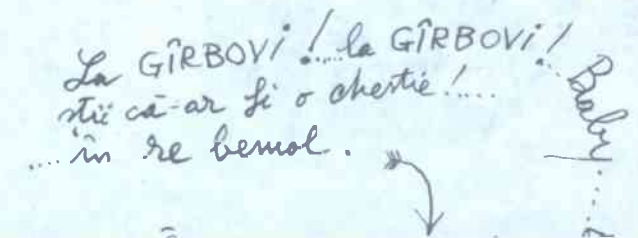 La GÎRBOVI!....la GÎRBOVI!...
știi că-ar fi o chestie!....
....în re bemol.